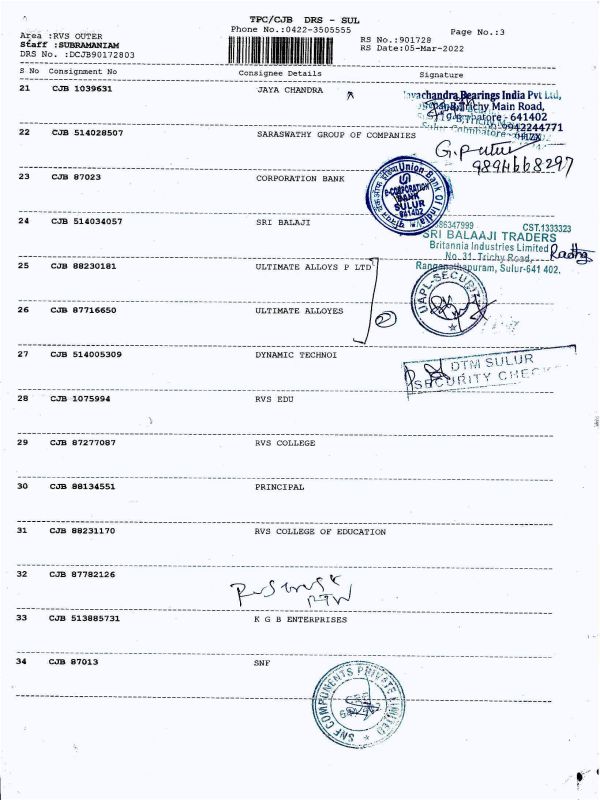 TPC/CJB DRS - SUL
Phone No.:0422-3505555
Page No.:3
Area :RVS OUTER
RS No.:901728
Staff :SUBRAMANIAM
RS Date:05-Mar-2022
DRS No. :DCJB90172803
S No Consignment No Consignee Details Signature
21 CJB 1039631 JAYA CHANDRA
Jayachandra Bearings India Pvt Ltd,
Trichy Main Road,
641402
9942244771
22 CJB 514028507 SARASWATHY GROUP OF COMPANIES
9894668297
23 CJB 87023 CORPORATION BANK
Union Bank Of India
E-CORPORATION
BANK
SULUR
641402
24 CJB 514034057 SRI BALAJI
86347999 CST.1333323
SRI BALAAJI TRADERS
Britannia Industries Limited
No. 31, Trichy Road,
Ranganathapuram, Sulur-641 402.
25 CJB 88230181 ULTIMATE ALLOYS P LTD
UAPL-SECURITY
26 CJB 87716650 ULTIMATE ALLOYES
2
27 CJB 514005309 DYNAMIC TECHNOI
DTM SULUR
SECURITY CHECK
28 CJB 1075994 RVS EDU
29 CJB 87277087 RVS COLLEGE
30 CJB 88134551 PRINCIPAL
31 CJB 88231170 RVS COLLEGE OF EDUCATION
32 CJB 87782126
33 CJB 513885731 K G B ENTERPRISES
34 CJB 87013 SNF
SNF COMPONENTS PRIVATE LIMITED